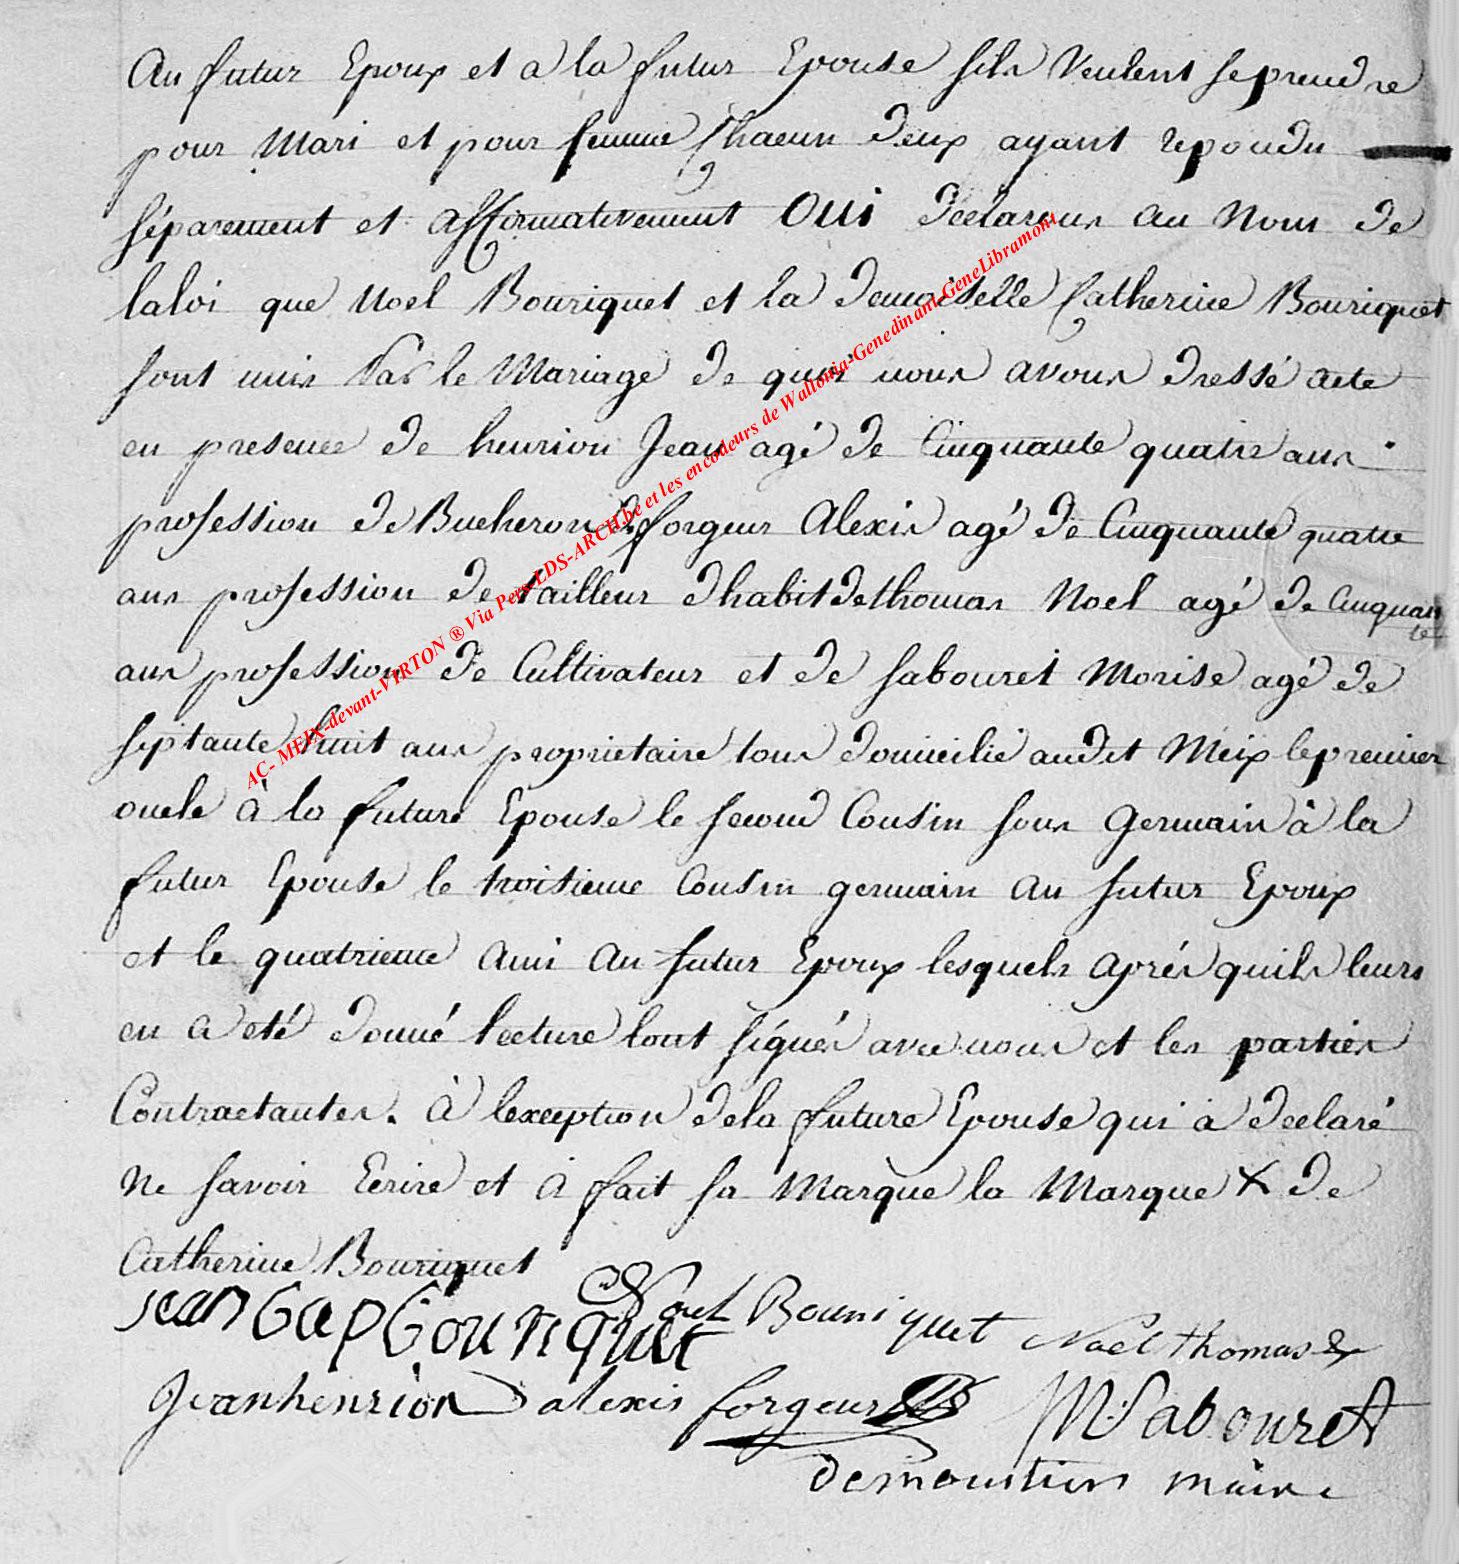 Au futur Epoux et a la futur Epouse sils Veulent se prendre
pour Mari et pour femme Chacun deux ayant repondu
séparement et affirmativement Oui declarons au Nom de
laloi que Noel Bouriquet et la demoiselle Catherine Bouriquet
sont unis Par le Mariage de quoi nous avons dressé acte
en presence de henrion Jean agé de Cinquante quatre ans
profession de Bucheron de forgeur Alexis agé de Cinquante quatre
ans profession de tailleur dhabit de thomas Noel agé de Cinquante
ans profession de Cultivateur et de Sabouret Morise agé de
septante huit ans proprietaire tous domicilié audit Meix le premier
oncle à la future Epouse le second Cousin sous Germain à la
futur Epouse le troisieme Cousin germain au futur Epoux
et le quatrieme Ami Au futur Epoux lesquels Aprés quils leurs
en a eté donné lecture lont signés avec nous et les parties
Contractantes. À lexception dela future Epouse qui à declaré
Ne savoir Ecrire et à fait sa Marque la Marque X de
Catherine Bouriquet
Noel Bouriquet
Jean Gap Gouriquet
Noel thomas
Jean henrion alexis forgeur
M. Sabouret
demoustiers maire
AC- MEIX-devant-VIRTON ® Via Pers-LDS-ARCH.be et les encodeurs de Wallonia-Genedinant-GeneLibramont